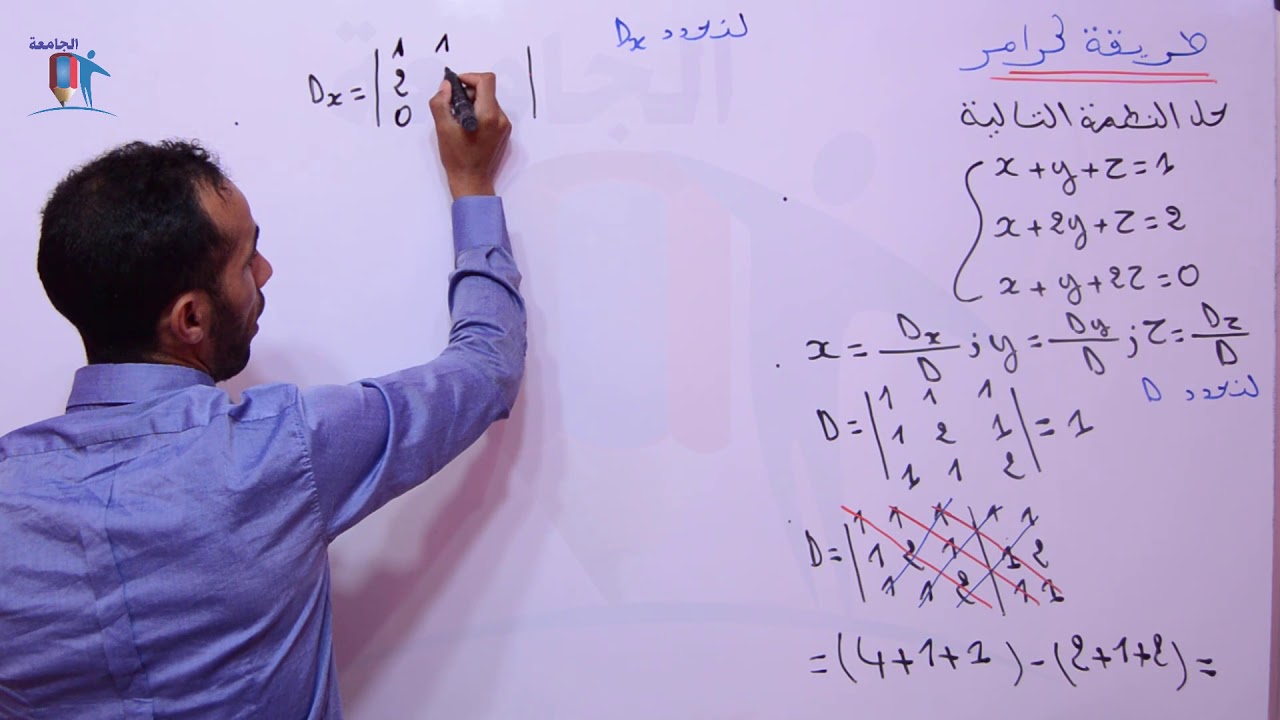 الجامعة
طريقة كرامر
حل النظمة التالية
x + y + z = 1
x + 2y + z = 2
x + y + 2z = 0
x = Dx/D ; y = Dy/D ; z = Dz/D
لنحدد D
D = | 1 1 1 |
| 1 2 1 | = 1
| 1 1 2 |
D = | 1 1 1 | 1 1
| 1 2 1 | 1 2
| 1 1 2 | 1 1
= (4+1+1) - (2+1+2) =
لنحدد Dx
Dx = | 1 1 |
| 2 |
| 0 |